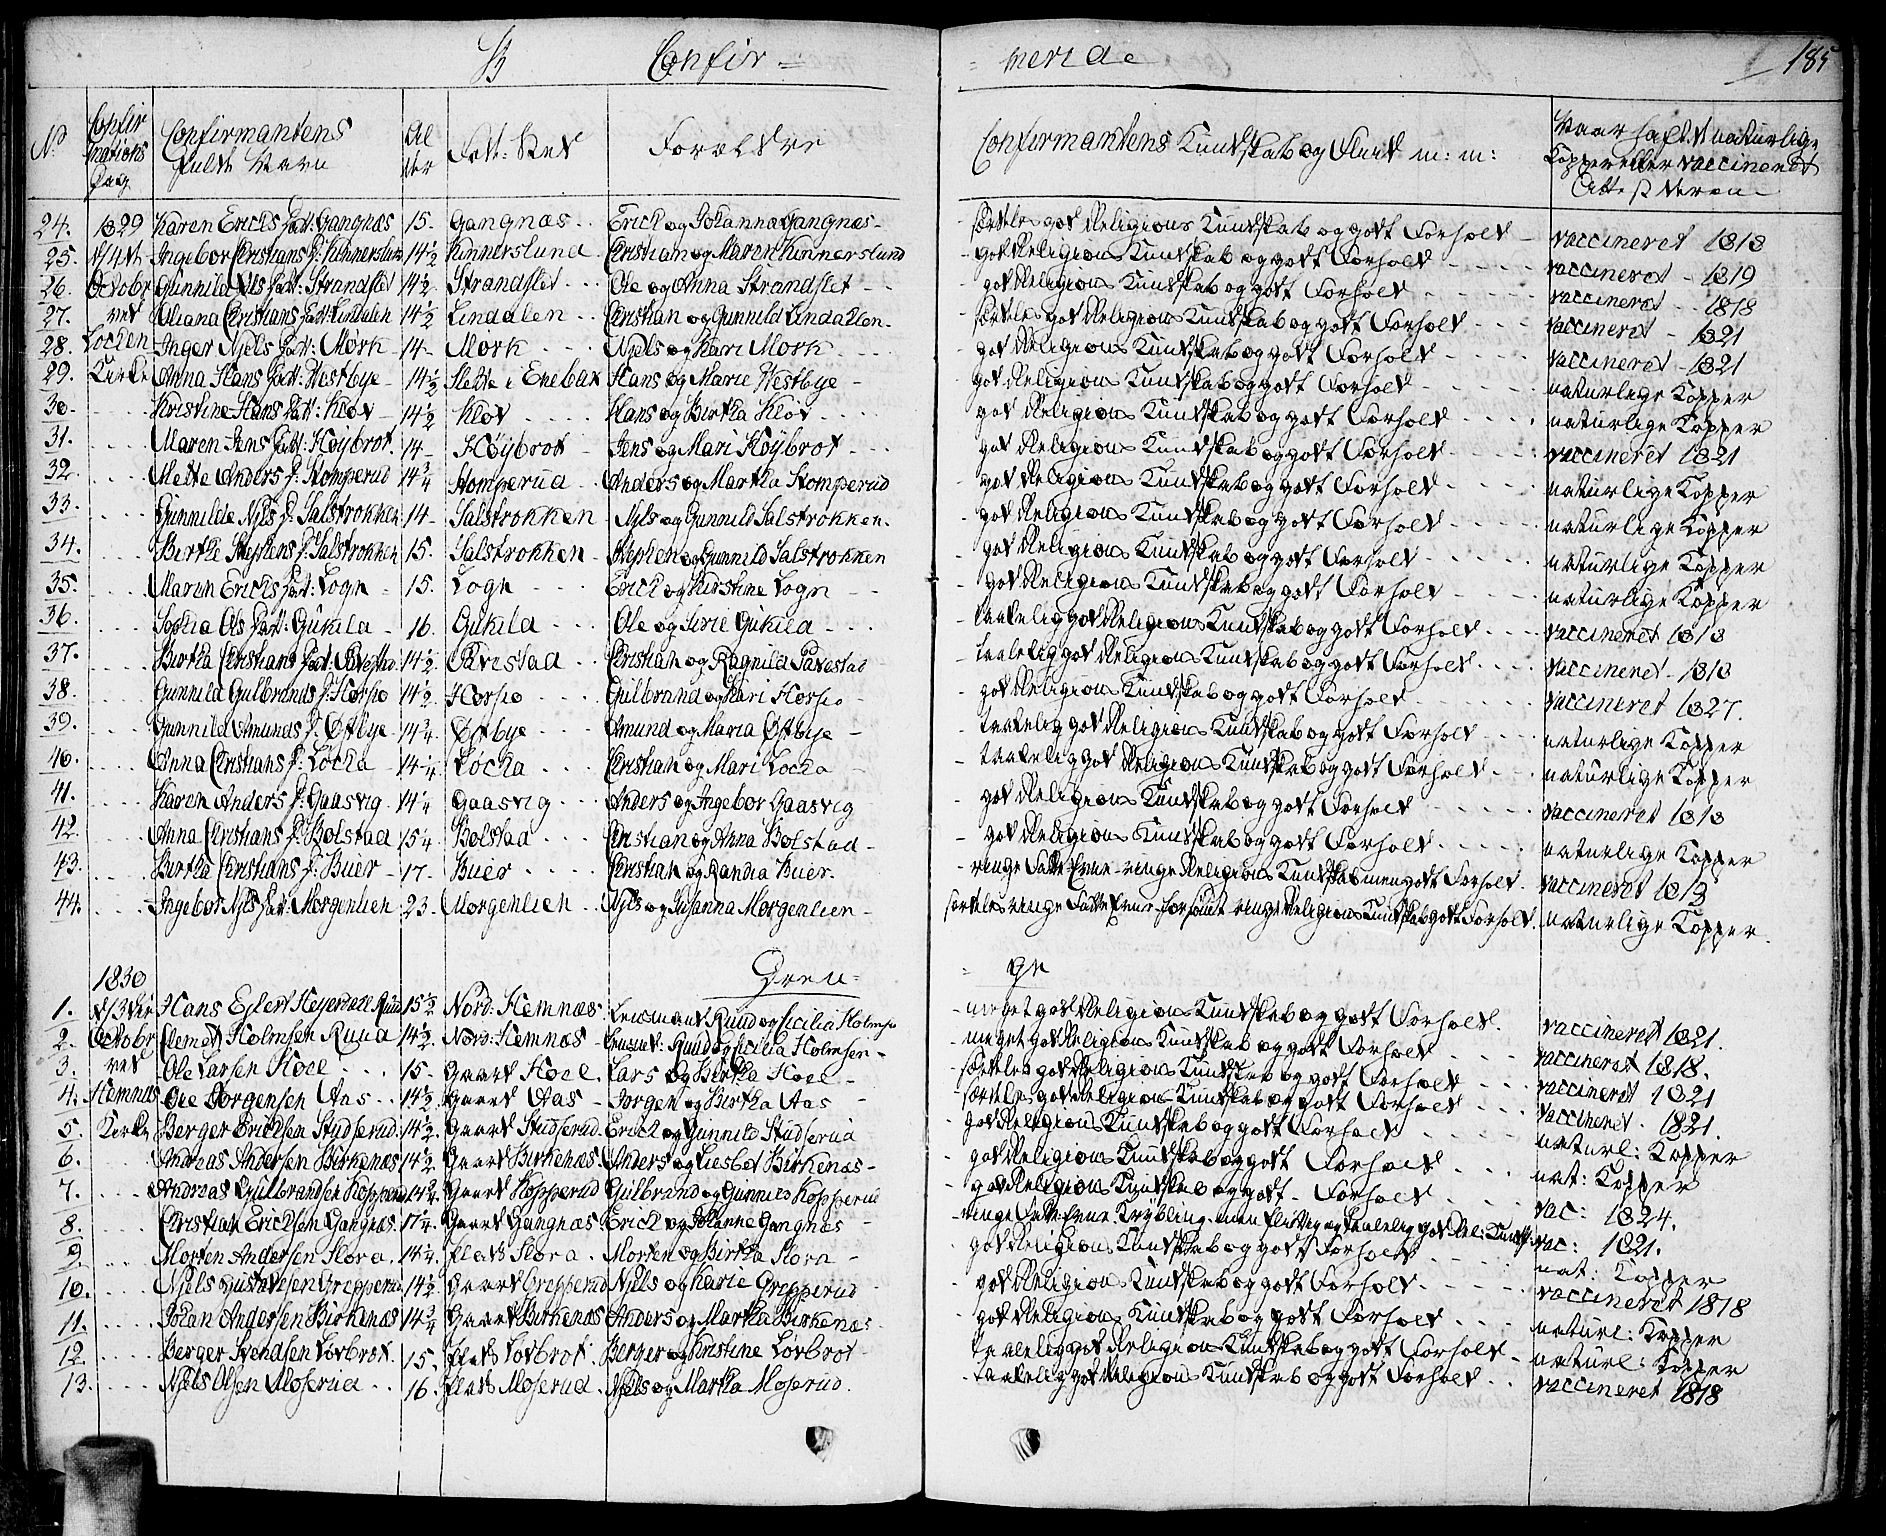 B Confir= =merede 185
No Confir mations Dag Confirmantens fulde Navn Alder Føde-Sted Forældre Confirmantens Kundskab og Flid m: m: Naar hafdt naturlige Kopper eller vaccineret
24. 1829 Karen Erichs dat: Gangnæs 15. Gangnæs Erich og Johanna Gangnæs særdeles god Religions Kundskab og godt Forhold vaccineret 1813
25. d/4de Ingebor Christians d: Kinnerslund 14½ Kinnerslund Christian og Maren Kinnerslund god Religions Kundskab og godt Forhold vaccineret 1819
26. Octobr Gunnild Ols dat: Strandslet 14½ Strandslet Ole og Anna Strandslet god Religions Kundskab og godt Forhold vaccineret 1818
27. ved Christians dat: Lindalen 14½ Lindalen Christian og Gunnild Lindallen særdeles god Religions Kundskab og godt Forhold vaccineret 1821
28. Locken Inger Njels dat: Mørk 14 Mørk Njels og Kari Mork god Religions Kundskab og godt Forhold vaccineret 1821
29. Kirke Anna Hans dat: Westbye 14½ Slette i Enebak Hans og Marie Westbye god Religions Kundskab og godt Forhold naturlige Kopper
30. Kristine Hans dat: Kløv 14½ Kløv Hans og Birtha Kløv god Religions Kundskab og godt Forhold naturlige Kopper
31. Maren Jens dat: Høÿbrot 14 Høÿbrot Jens og Mari Høÿbrot god Religions Kundskab og godt Forhold vaccineret 1821
32. Mette Anders d: Stomperud 14¾ Stomperud Anders og Martha Stomperud god Religions Kundskab og godt Forhold naturlige Kopper
33. Gunnilde Njls d: Salstrokken 14 Salstrokken Njls og Gunnild Salstrokken god Religions Kundskab og godt Forhold naturlige Kopper
34. Birthe Stephens d: Salstrokken 15. Salstrokken Stephen og Gunnild Salstrokken god Religions Kundskab og godt Forhold naturlige Kopper
35. Maren Erichs dat: Logn 15. Logn Erich og Kirstine Logn god Religions Kundskab og godt Forhold naturlige Kopper
36. Sophia Ols dat: Gukild 16. Gukild Ole og Sirie Gukild taalelig god Religions Kundskab og godt Forhold vaccineret 1813
37. Birtha Christians dat: Pavestad 14½ Pavestad Christian og Ragnild Pavestad taalelig god Religions Kundskab og godt Forhold vaccineret 1813
38. Gunnild Gulbrands d: Horsio 14½ Horsio Gulbrand og Kari Horsio god Religions Kundskab og godt Forhold vaccineret 1827.
39. Gunnild Amunds d: Østbye 14¾ Østbye Amund og Maria Østbye taalelig god Religions Kundskab og godt Forhold naturlige Kopper
40. Anna Christians d: Løcka 14¼ Løcka Christian og Mari Locka taalelig god Religions Kundskab og godt Forhold naturlige Kopper
41. Karen Anders d: Gaasvig 14¼ Gaasvig Anders og Ingebor Gaasvig god Religions Kundskab og godt Forhold vaccineret 1813
42. Anna Christians d: Bolstad 15¼ Bolstad Christian og Anna Bolstad god Religions Kundskab og godt Forhold naturlige Kopper
43. Birtha Christians d: Buer 17 Buer Christian og Randia Buer ringe Fatte Evne ringe Religions Kundskab men godt Forhold vaccineret 1813
44. Ingebor Njls dat: Morgenlien 23 Morgenlien Njls og Susanna Morgenlien særdeles ringe Fatte Evne forsømt ringe Religions Kundskab godt Forhold naturlige Kopper
1830 Dren= =ge
1. d/3die Hans Ejlert Heyerdahl Ruud 15½ Nord: Hemnæs Lensmand Ruud og Cicilia Holmsen meget god Religions Kundskab og godt Forhold vaccineret 1821.
2. Octobr Clemet Holmsen Ruud 14½ Nord: Hemnæs Lensmd: Ruud og Cicilia Holmsen meget god Religions Kundskab og godt Forhold vaccineret 1818.
3. ved Ole Larsen Hoel 15 Gaard Hoel Lars og Birtha Hoel særdeles god Religions Kundskab og godt Forhold vaccineret 1821
4. Hemnes Ole Jorgensen Aas 14½ Gaard Aas Jorgen og Birtha Aas særdeles god Religions Kundskab og godt Forhold vaccineret 1821.
5. Kirke Berger Ericksen Studserud 14½ Gaard Studserud Erick og Gunnild Studserud god Religions Kundskab og godt Forhold naturl: Kopper
6. Andreas Andersen Birkenæs 14½ Gaard Birkenæs Anders og Liesbet Birkenæs god Religions Kundskab og godt Forhold nat: Kopper
7. Andreas Gulbrandsen Kopperud 14¾ Gaard Kopperud Gulbrand og Gunnild Kopperud god Religions Kundskab og godt Forhold vac: 1824.
8. Christian Ericksen Gangnæs 17¼ Gaard Gangnæs Erick og Johanne Gangnes ringe Fatte Evne Krøbling men flittig og taalelig god Rel: Kundsk: vac: 1821.
9. Morten Andersen Flora 14¼ Plads Flora Morten og Birtha Flora god Religions Kundskab og godt Forhold nat: Kopper
10. Njels Gustavsen Grepperud 14½ Gaard Grepperud Njels og Karie Grepperud god Religions Kundskab og godt Forhold vaccineret 1818
11. Johan Andersen Birkenæs 14¾ Gaard Birkenæs Anders og Martha Birkenæs god Religions Kundskab og godt Forhold naturl: Kopper
12. Berger Svendsen Lövbrot 15. Plads Lövbrot Berger og Kristine Lövbrot taalelig god Religions Kundskab og godt Forhold naturl: Kopper
13. Njels Olsen Moserud 16. Plads Moserud Njels og Martha Moserud taalelig god Religions Kundskab og godt Forhold vaccineret 1818